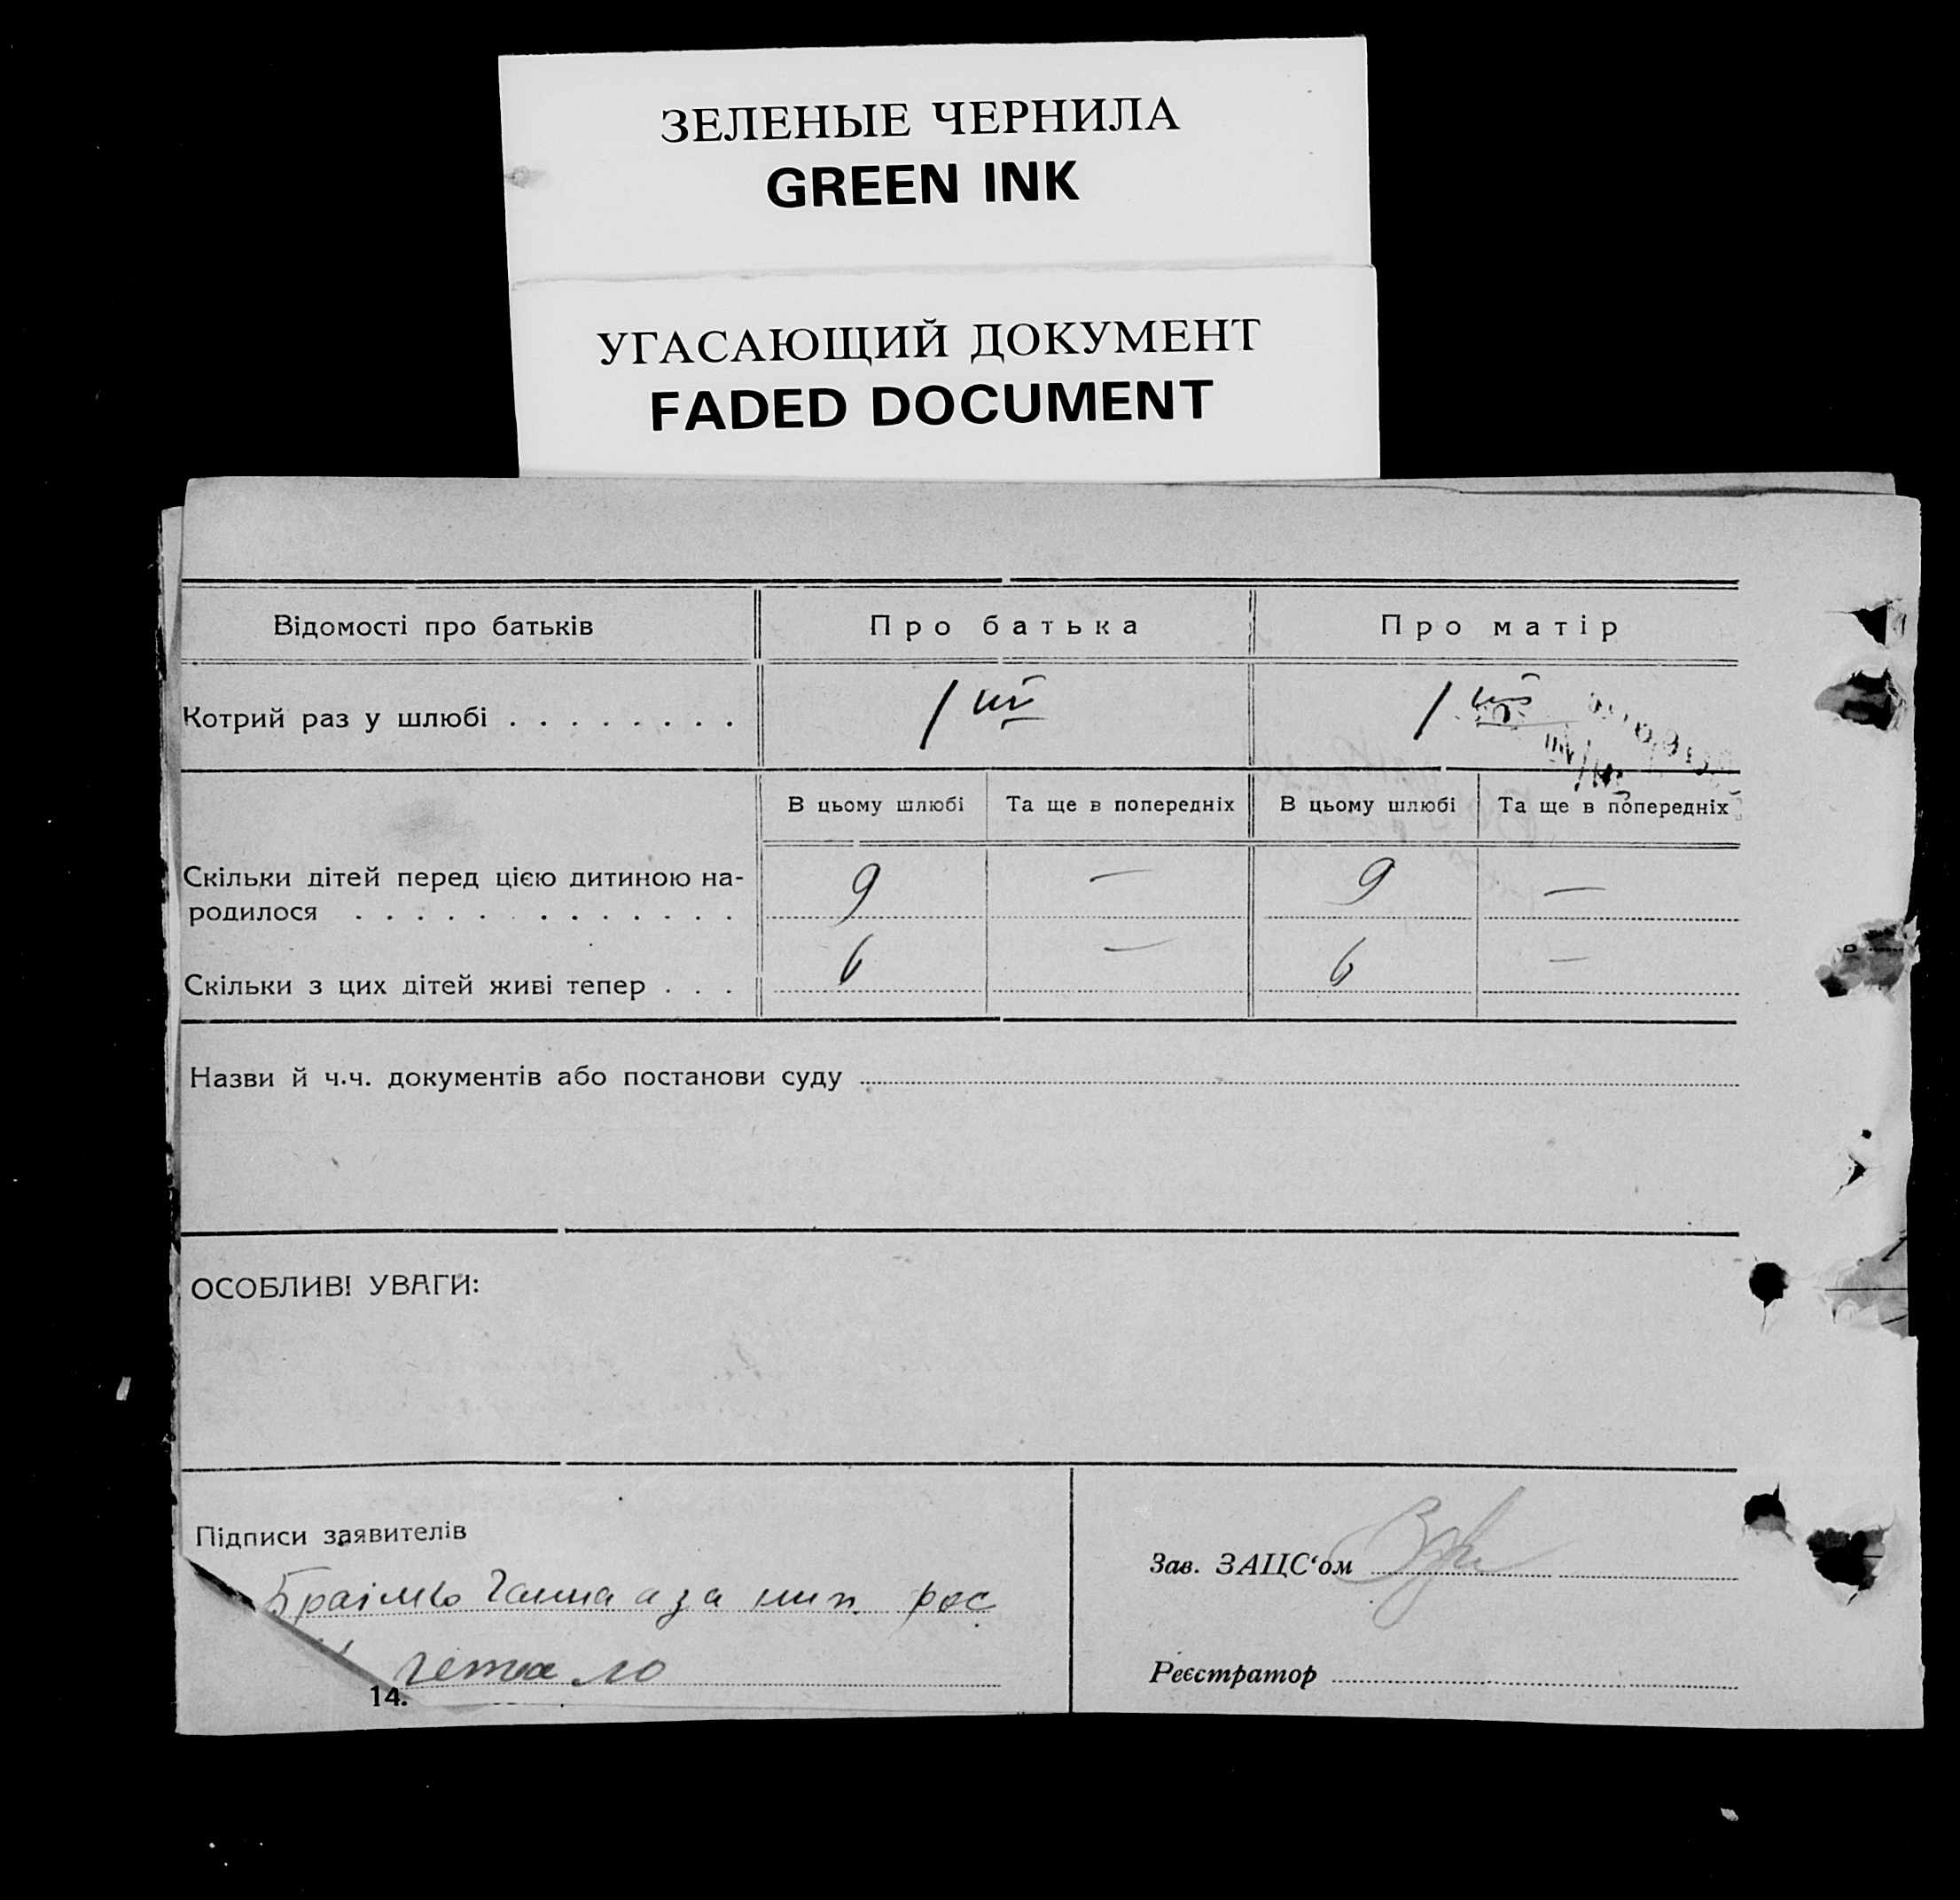 ЗЕЛЕНЫЕ ЧЕРНИЛА
GREEN INK
УГАСАЮЩИЙ ДОКУМЕНТ
FADED DOCUMENT
Відомості про батьків
Про батька
Про матір
Котрий раз у шлюбі . . . . . . . .
1 ий
1 ий
В цьому шлюбі
Та ще в попередніх
В цьому шлюбі
Та ще в попередніх
Скільки дітей перед цією дитиною на-
родилося . . . . . . . . . . . . .
9
—
9
—
Скільки з цих дітей живі тепер . . .
6
—
6
—
Назви й ч.ч. документів або постанови суду
ОСОБЛИВІ УВАГИ:
Підписи заявителів
а за рос
14.
Зав. ЗАЦС‘ом
Реєстратор